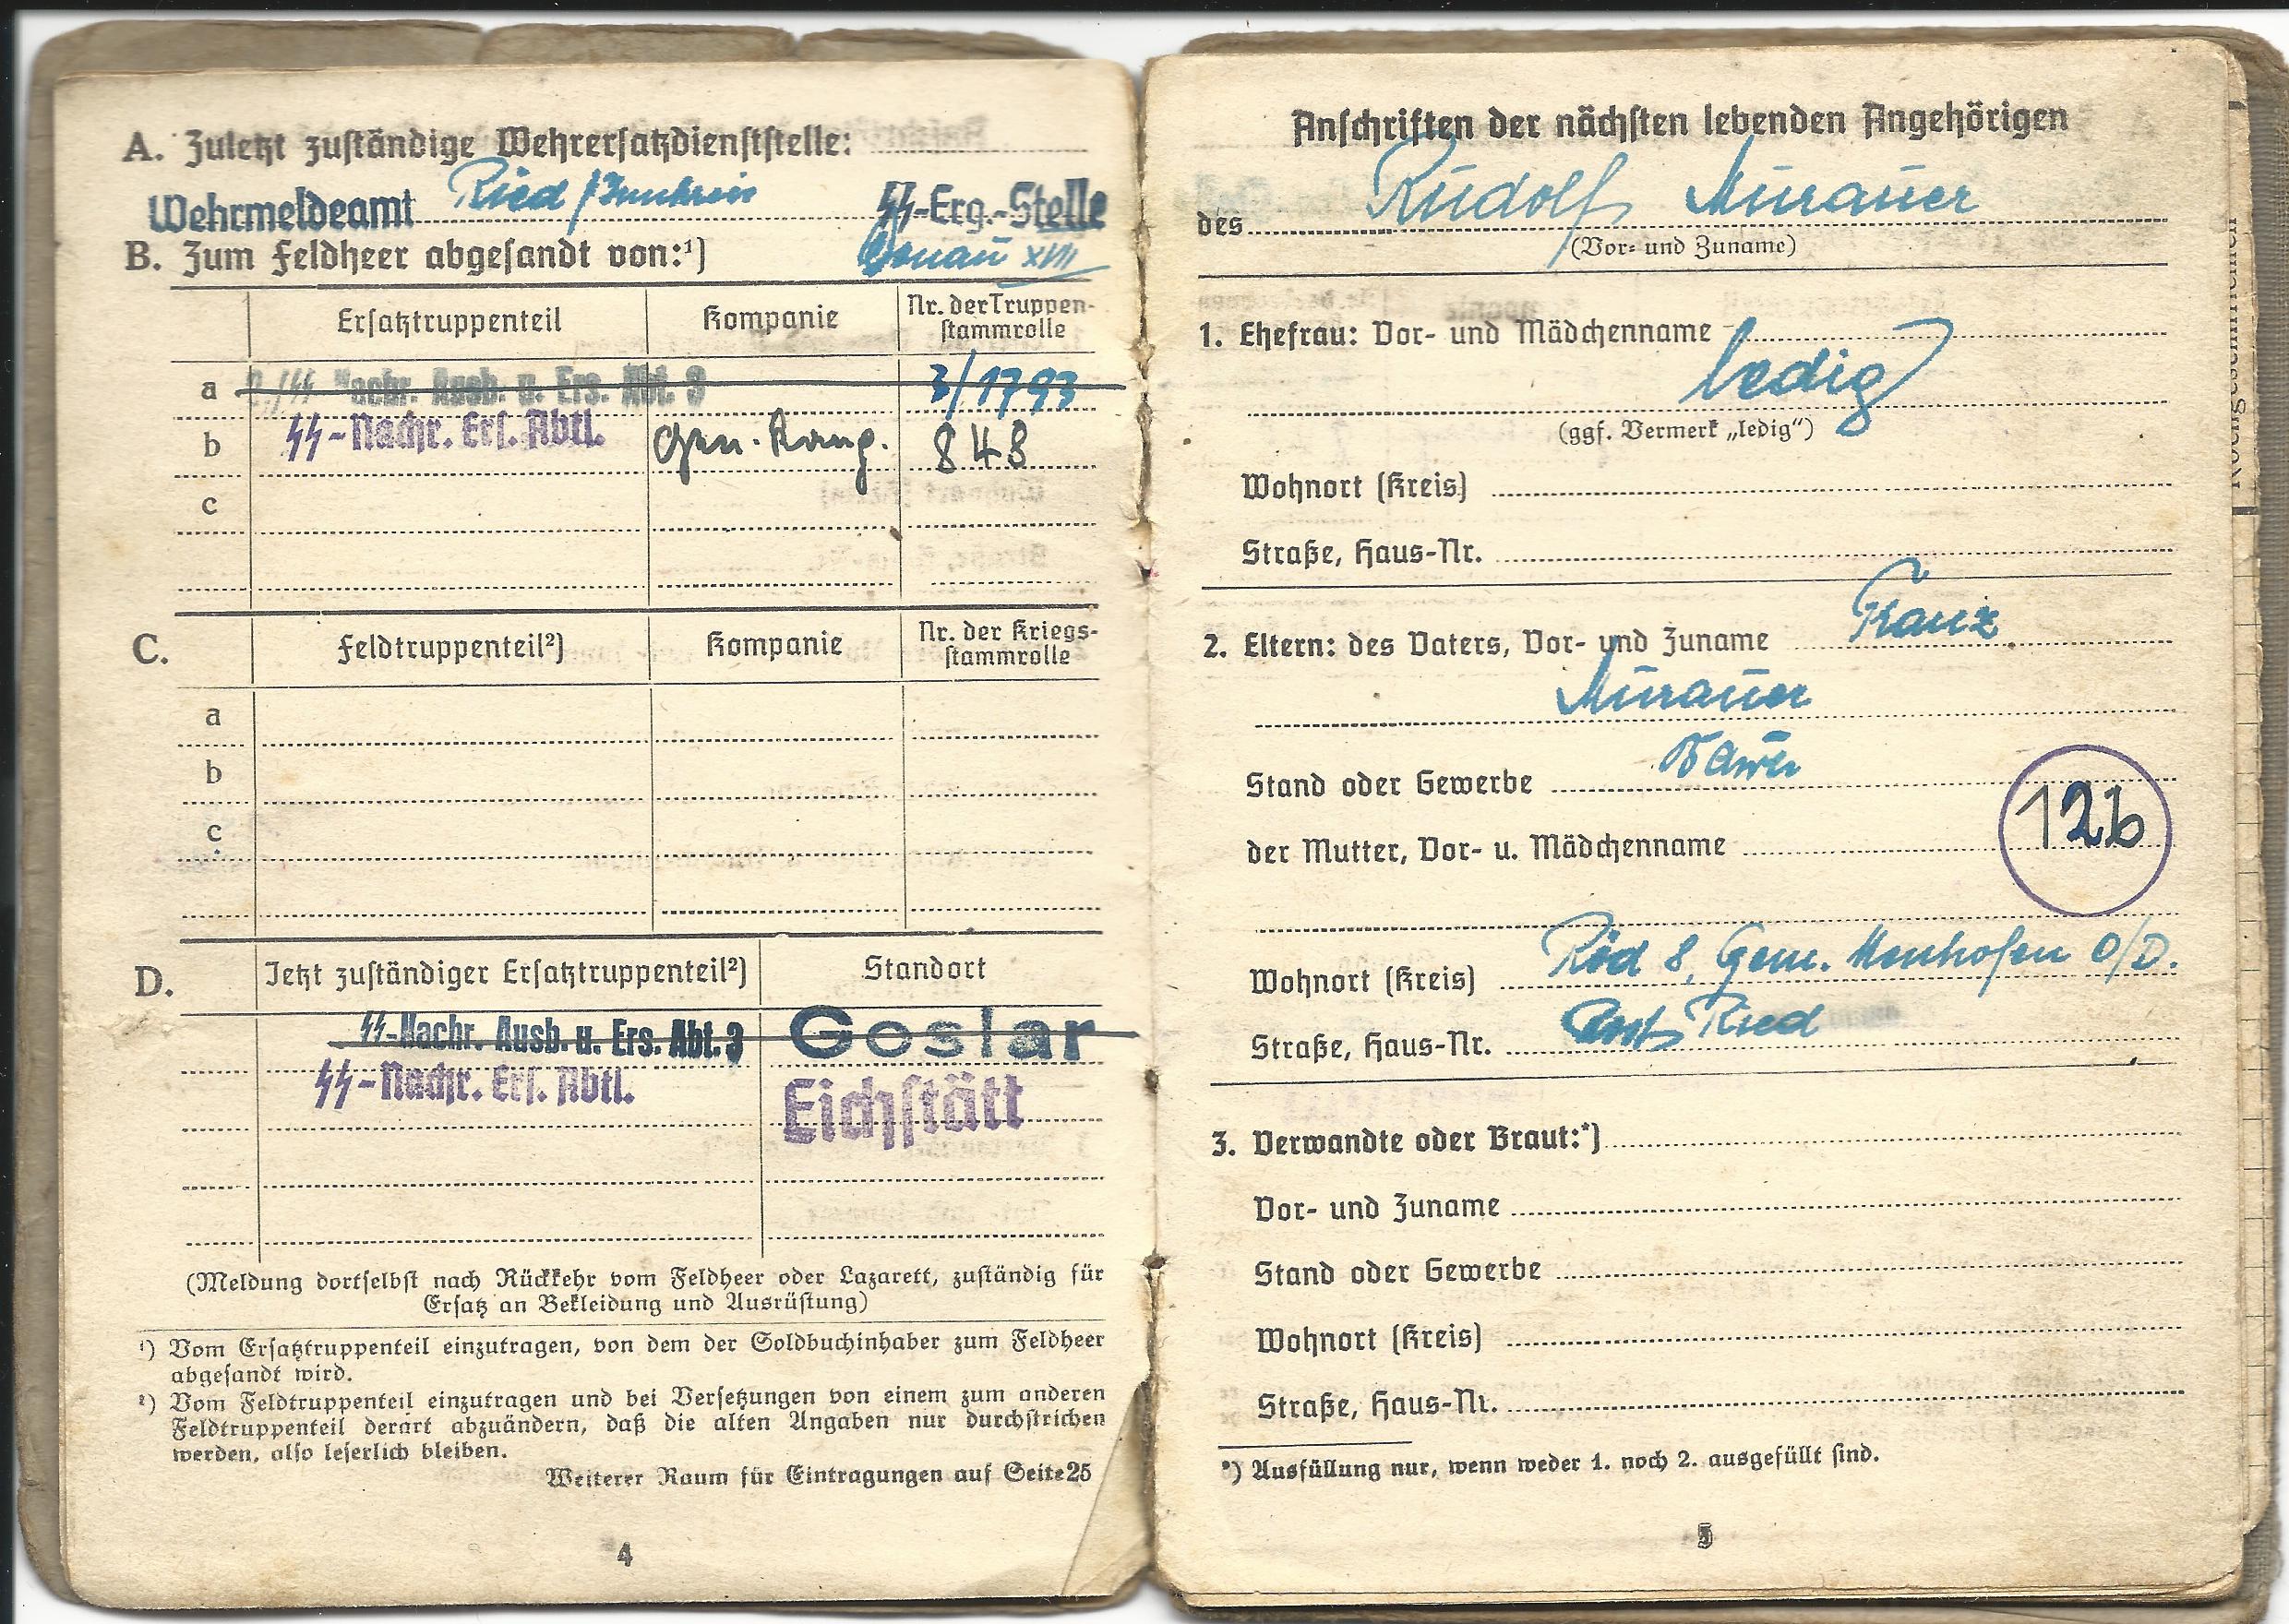 A. Zuletzt zuständige Wehrersatzdienststelle:
Wehrmeldeamt Ried/Innkreis SS-Erg.-Stelle
Donau XVII
B. Zum Feldheer abgesandt von:¹)
Ersatztruppenteil Kompanie Nr. der Truppenstammrolle
a SS Nachr. Ausb. u. Ers. Abt. 3 3/1793
b SS-Nachr. Ers. Abtl. Gen. Komp. 848
c
C. Feldtruppenteil²) Kompanie Nr. der Kriegsstammrolle
a
b
c
D. Jetzt zuständiger Ersatztruppenteil²) Standort
SS-Nachr. Ausb. u. Ers. Abt. 3 Goslar
SS-Nachr. Ers. Abtl. Eichstätt
(Meldung dortselbst nach Rückkehr vom Feldheer oder Lazarett, zuständig für
Ersatz an Bekleidung und Ausrüstung)
¹) Vom Ersatztruppenteil einzutragen, von dem der Soldbuchinhaber zum Feldheer
abgesandt wird.
²) Vom Feldtruppenteil einzutragen und bei Versetzungen von einem zum anderen
Feldtruppenteil derart abzuändern, daß die alten Angaben nur durchstrichen
werden, also leserlich bleiben.
Weiterer Raum für Eintragungen auf Seite 25
4
Anschriften der nächsten lebenden Angehörigen
des Rudolf Murauer
(Vor- und Zuname)
1. Ehefrau: Vor- und Mädchenname
ledig
(ggf. Vermerk „ledig“)
Wohnort (Kreis)
Straße, Haus-Nr.
2. Eltern: des Vaters, Vor- und Zuname Franz
Murauer
Stand oder Gewerbe Bauer
126
der Mutter, Vor- u. Mädchenname
Wohnort (Kreis) Röd 8, Gem. O/D.
Straße, Haus-Nr. Post Ried
3. Verwandte oder Braut:*)
Vor- und Zuname
Stand oder Gewerbe
Wohnort (Kreis)
Straße, Haus-Nr.
*) Ausfüllung nur, wenn weder 1. noch 2. ausgefüllt sind.
5